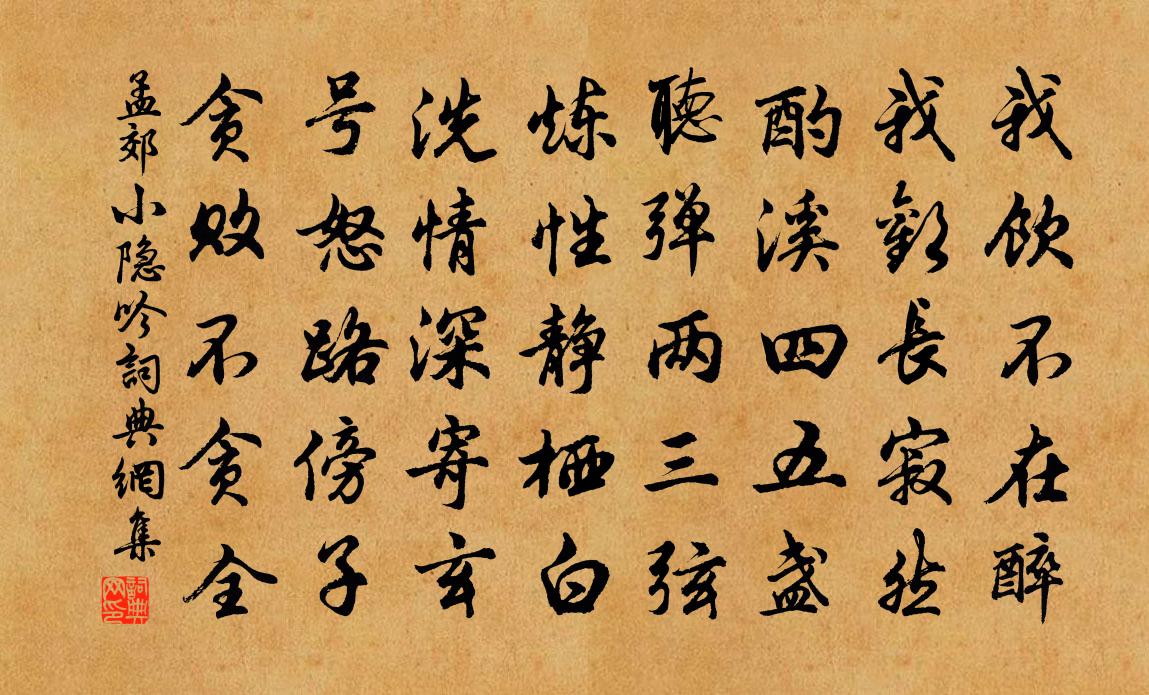 我饮不在醉
我歡長寂然
酌溪四五盏
聽弹两三弦
炼性静栖白
洗情深寄玄
号怒路傍子
贪败不贪全
孟郊小隐吟詞典網集
詞典网印